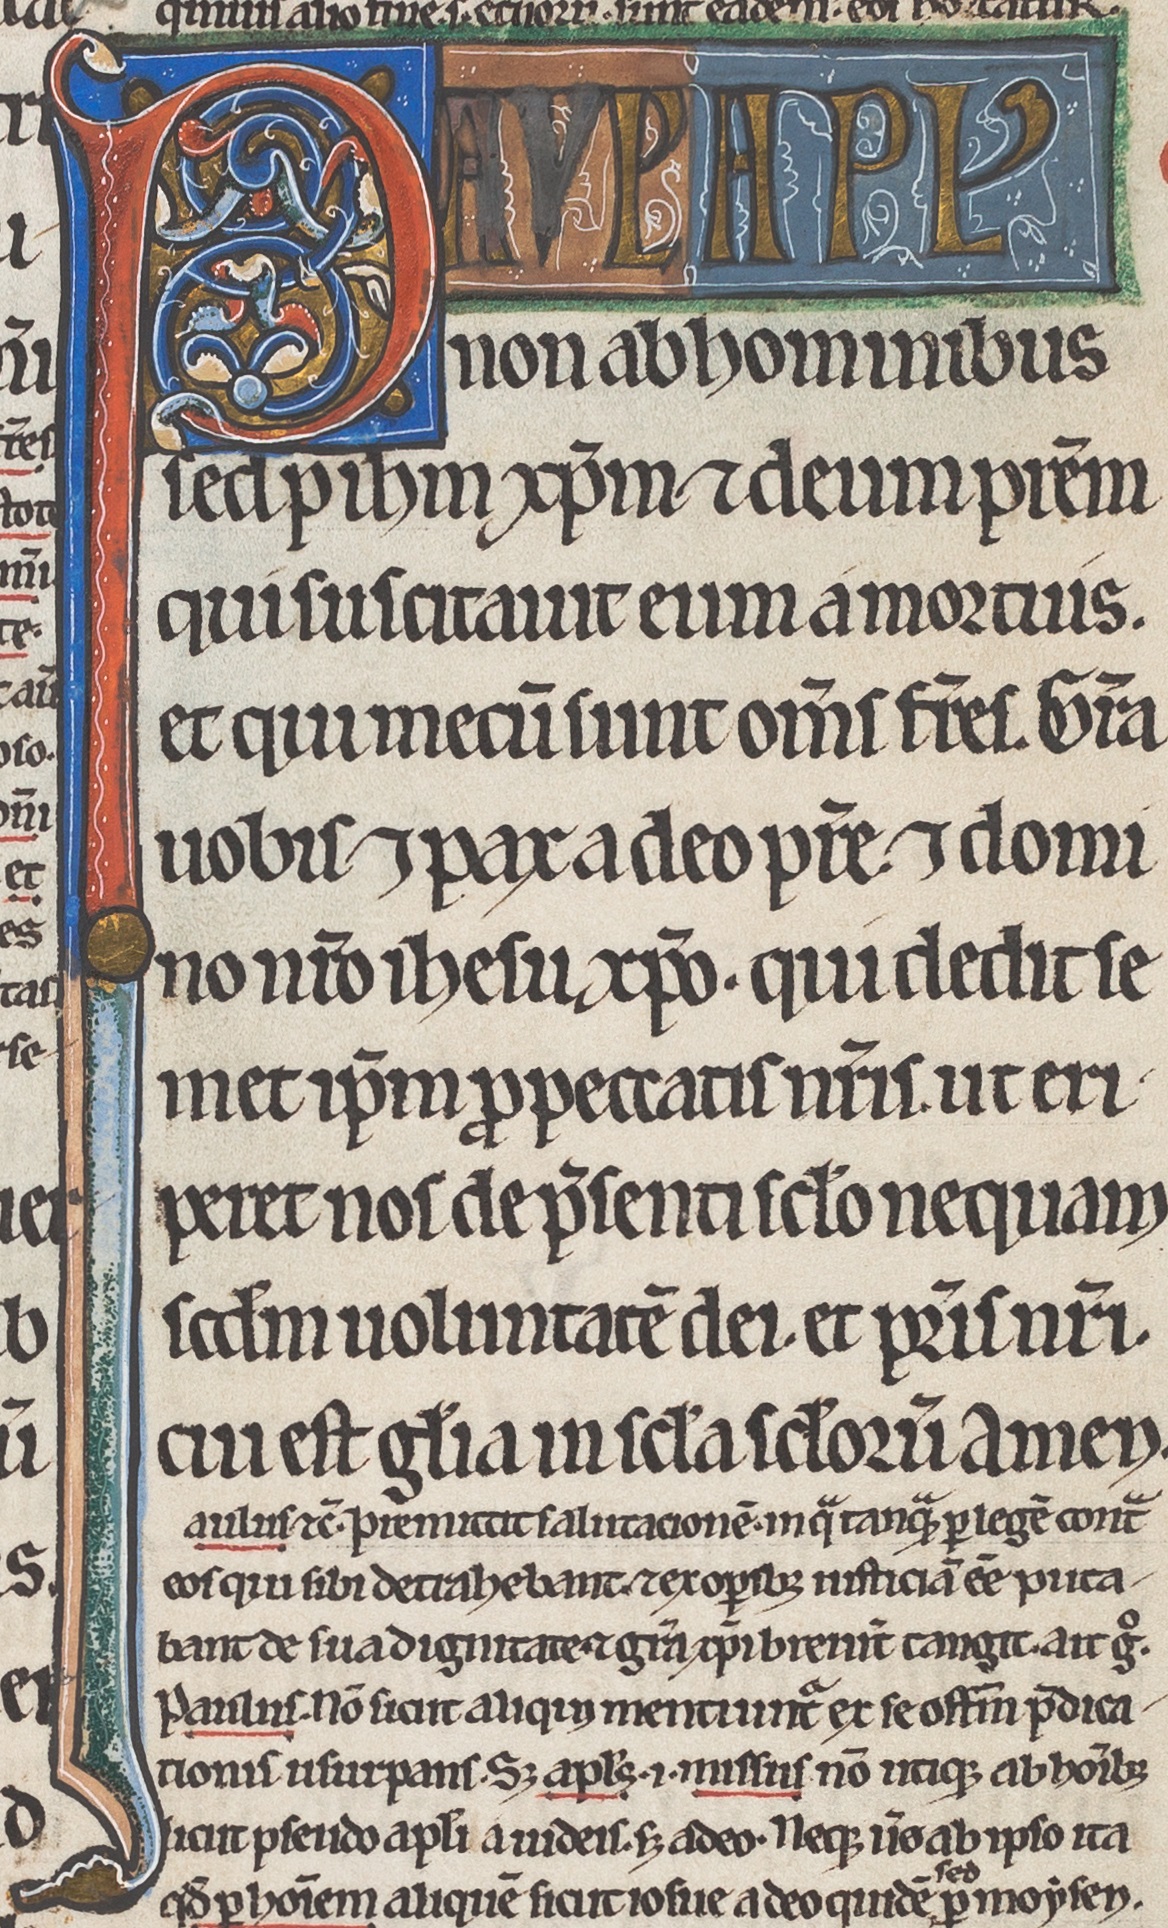 PAUL APLʼ
non ab hominibus
sed p ihm xp̄m ⁊ deum pr̄em
qui suscitauit eum a mortuis.
et qui mecū sunt om̄s fr̄es. Gr̄a
uobis ⁊ pax a deo pr̄e. ⁊ domi
no nr̄o ihesu xp̄o. qui dedit se
met ip̄m ꝓ peccatis nr̄is. ut eri
peret nos de p̄senti sclo nequam
scdm uoluntatē dei. et pr̄is nr̄i.
cui est glia in scla sclorū Amen.
aulus ⁊c̄. premittit salutacionē. in qͣ tanqͣꝫ ꝑ legē contͣ
eos qui sibi detrahebant. ⁊ ex oꝑibꝫ iusticiā ēē puta
bant de sua dignitate. ⁊ gr̄a xp̄i breuit̄ tangit. ait gͦ.
Paulus. Nō sicut aliqui mentiuntͣ ex se offm̄ p̄dica
tionis usurpans. Sꝫ apls. .i. missus nō utiqꝫ ab hoībꝫ
sicut pseudo apli a iudeis. sꝫ a deo. Neqꝫ ū̄o ab ipso ita
qd̄ ꝑ hoīem aliquē sicut iosue a deo quidē sed ꝑ moẏsen.